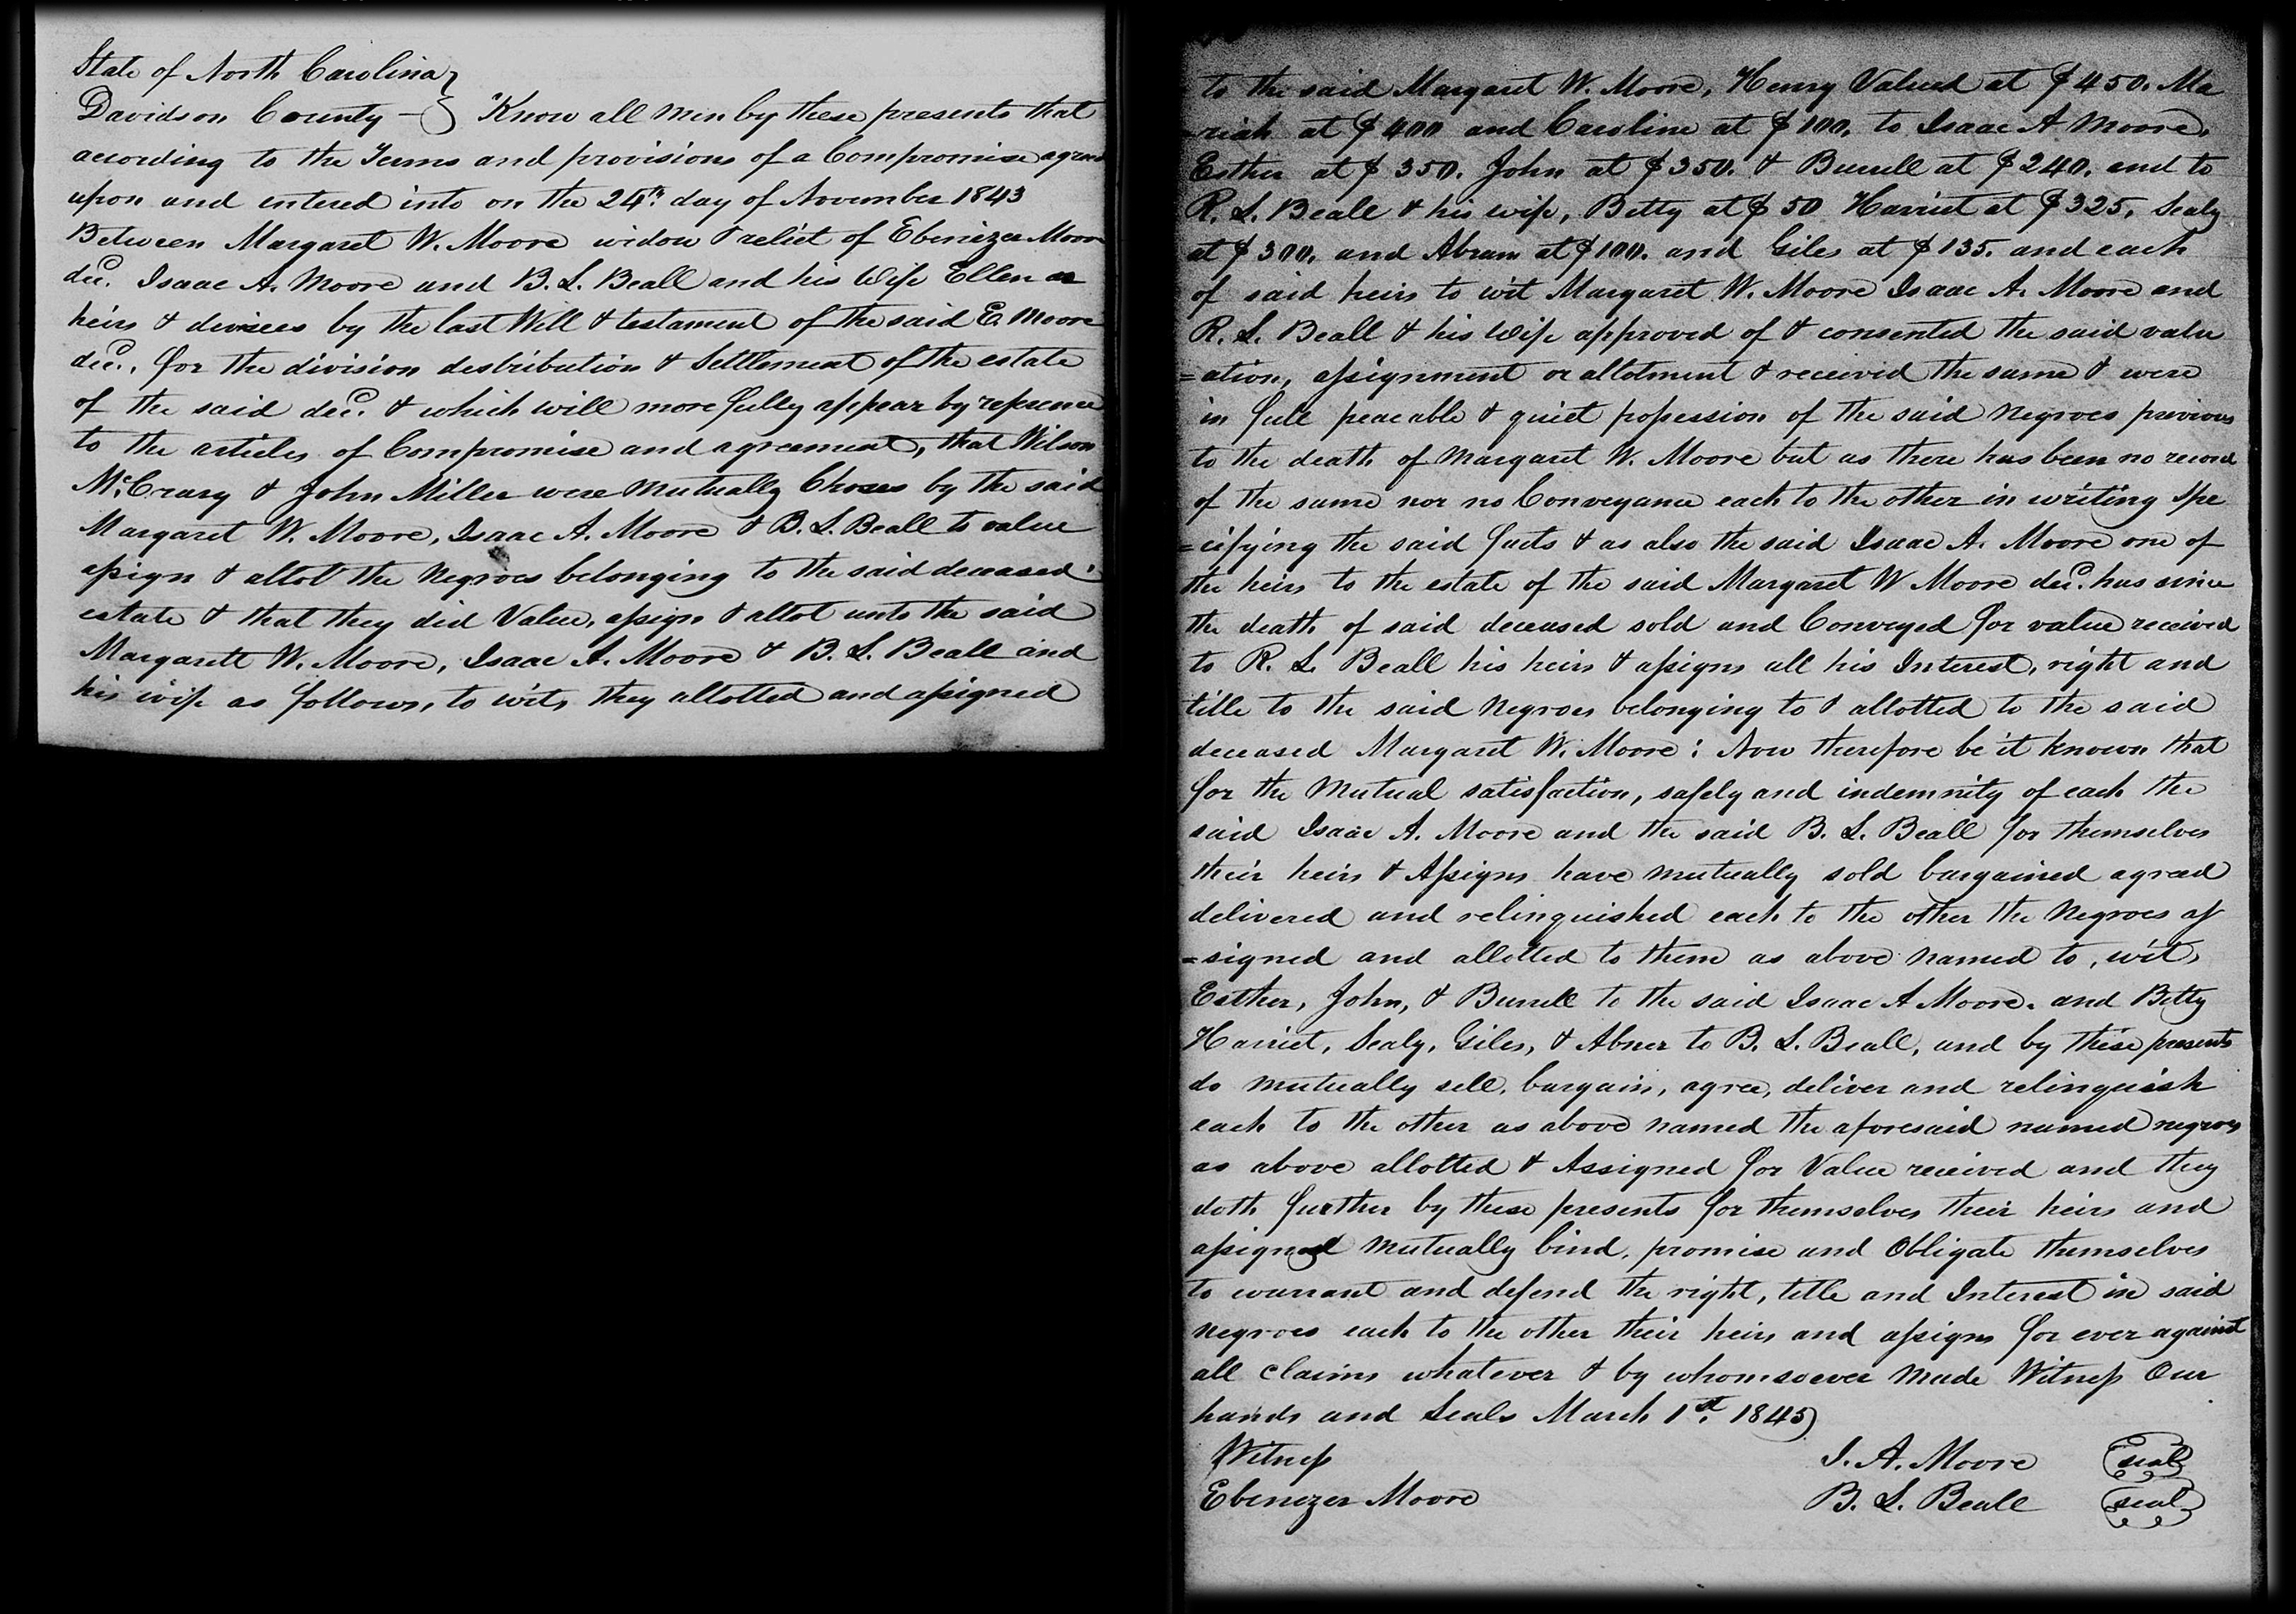 State of North Carolina }
Davidson County — } Know all men by these presents that
according to the Terms and provisions of a Compromise agreed
upon and entered into on the 24th. day of November 1843
Between Margaret W. Moore widow & relict of Ebenezer Moore
decd. Isaac A. Moore and B. L. Beall and his Wife Ellen as
heirs & divisees by the last Will & testament of the said E. Moore
decd., for the division destribution & Settlement of the estate
of the said decd. & which will more fully appear by referrence
to the articles of Compromise and agreement, that Wilson
McCrary & John Miller were Mutually Chosen by the said
Margaret W. Moore, Isaac A. Moore & B. L. Beall to value
assign & allot the Negroes belonging to the said deceased
estate & that they did Value, assign & allot unto the said
Margarett W. Moore, Isaac A. Moore & B. L. Beall and
his wife as follows, to wit, they allotted and assigned
to the said Margaret W. Moore, Henry Valued at $450. Ma
=riah at $400 and Caroline at $100, to Isaac A Moore,
Esther at $350. John at $350. & Burrell at $240. and to
R. L. Beall & his wife, Betty at $50 Harriet at $325, Sealy
at $300, and Abram at $100. and Giles at $135. and each
of said heirs to wit Margaret W. Moore Isaac A. Moore and
R. L. Beall & his Wife approved of & consented the said valu
=ation, assignment or allotment & received the same & were
in full peacable & quiet possession of the said Negroes previous
to the death of Margaret W. Moore but as there has been no record
of the same nor no Conveyance each to the other in writing spe
=cifying the said facts & as also the said Isaac A. Moore one of
the heirs to the estate of the said Margaret W Moore decd. has since
the death of said deceased sold and Conveyed for value received
to R. L. Beall his heirs & assigns all his Interest, right and
title to the said Negroes belonging to & allotted to the said
deceased Margaret W. Moore: Now therefore be it known that
for the Mutual satisfaction, safely and indemnity of each the
said Isaac A. Moore and the said B. L. Beall for themselves
their heirs & Assigns have mutually sold bargained agreed
delivered and relinquished each to the other the Negroes as
=signed and allotted to them as above named to, wit,
Esther, John, & Burrell to the said Isaac A Moore. and Betty
Harriet, Sealy, Giles, & Abner to B. L. Beall, and by these presents
do mutually sell, bargain, agree, deliver and relinquish
each to the other as above named the aforesaid named negroes
as above allotted & Assigned for Value received and they
doth further by these presents for themselves their heirs and
assigns mutually bind, promise and Obligate themselves
to warrant and defend the right, title and Interest in said
negroes each to the other their heirs and assigns for ever against
all claims whatever & by whomsoever Made Witness Our
hands and Seals March 1st. 1845
Witness I. A. Moore (seal)
Ebenezer Moore B. L. Beall (seal)